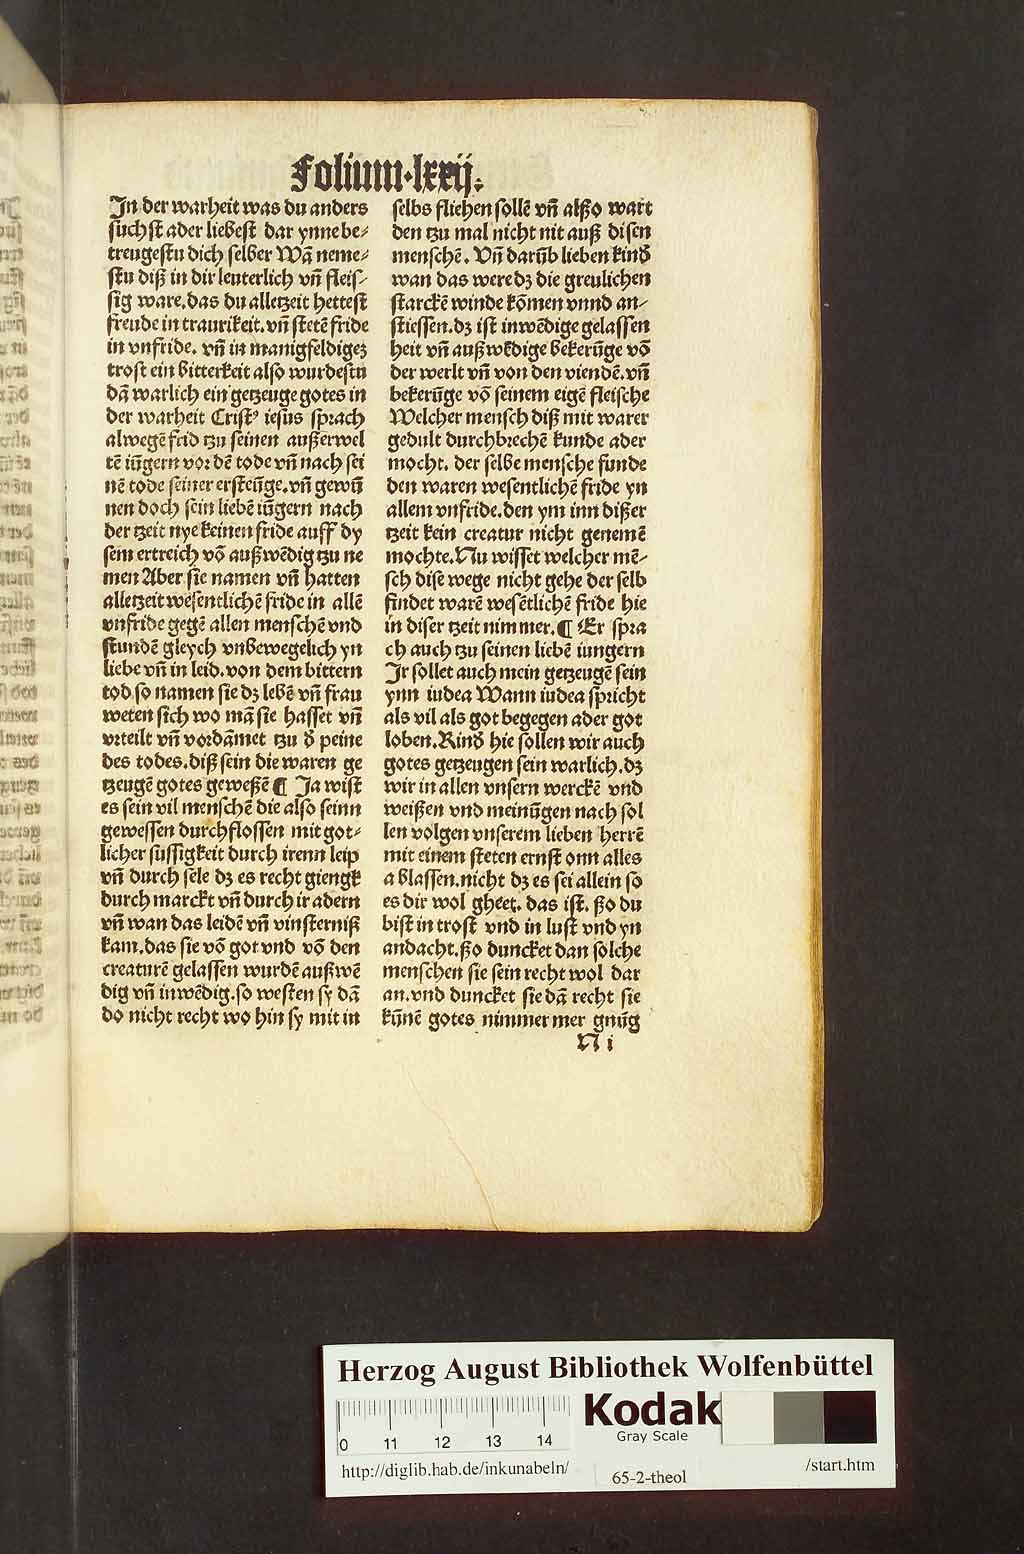 Folium·lxxij.
In der warheit was du anders
suchst ader liebest dar ynne be⸗
treugestu dich selber Wā neme⸗
stu diß in dir leuterlich vn̄ fleis⸗
sig ware.das du alletzeit hettest
freude in traurikeit.vn̄ stetē fride
in vnfride. vn̄ in manigfeldigeꝫ
trost ein bitterkeit also wurdestu
dā warlich ein getzeuge gotes in
der warheit Cristꝰ iesus sprach
alwegē frid tzu seinen außerwel
tē iūgern vor dē tode vn̄ nach sei
nē tode seiner ersteūge.vn̄ gewū
nen doch sein liebē iūgern nach
der tzeit nye keinen fride auff dy
sem ertreich vō außwēdig tzu ne
men Aber sie namen vn̄ hatten
alletzeit wesentlichē fride in allē
vnfride gegē allen menschē vnd
stundē gleych vnbewegelich yn
liebe vn̄ in leid.von dem bittern
tod so namen sie dꝫ lebē vn̄ frau
weten sich wo mā sie hasset vn̄
vrteilt vn̄ vordāmet tzu d̕ peine
des todes.diß sein die waren ge
tzeugē gotes geweßē ¶ Ja wist
es sein vil menschē die also seinn
gewessen durchflossen mit got⸗
licher sussigkeit durch irenn leip
vn̄ durch sele dꝫ es recht giengk
durch marckt vn̄ durch ir adern
vn̄ wan das leidē vn̄ vinsterniß
kam.das sie vō got vnd vō den
creaturē gelassen wurdē außwē
dig vn̄ inwēdig.so westen sy dā
do nicht recht wo hin sy mit in
selbs fliehen sollē vn̄ alßo wart
den tzu mal nicht nit auß disen
menschē. Vn̄ darūb lieben kind̕
wan das were dꝫ die greulichen
starckē winde kōmen vnnd an⸗
stiessen.dꝫ ist inwēdige gelassen
heit vn̄ außwēdige bekerūge vō
der werlt vn̄ von den viendē.vn̄
bekerūge vō seinem eigē fleische
Welcher mensch diß mit warer
gedult durchbrechē kunde ader
mocht. der selbe mensche funde
den waren wesentlichē fride yn
allem vnfride.den ym inn dißer
tzeit kein creatur nicht genemē
mochte.Nu wisset welcher mē⸗
sch dise wege nicht gehe der selb
findet warē wesētlichē fride hie
in diser tzeit nimmer.¶ Er spra
ch auch tzu seinen liebē iungern
Jr sollet auch mein getzeugē sein
ynn iudea Wann iudea spricht
als vil als got begegen ader got
loben.Kind̕ hie sollen wir auch
gotes getzeugen sein warlich.dꝫ
wir in allen vnsern werckē vnd
weißen vnd meinūgen nach sol
len volgen vnserem lieben herrē
mit einem steten ernst onn alles
ablassen.nicht dꝫ es sei allein so
es dir wol gheet. das ist. ßo du
bist in trost vnd in lust vnd yn
andacht.ßo duncket dan solche
menschen sie sein recht wol dar
an.vnd duncket sie dā recht sie
kūnē gotes nimmer mer gnūg
N i
Herzog August Bibliothek Wolfenbüttel
0 11 12 13 14
Kodak
Gray Scale
http://diglib.hab.de/inkunabeln/
65-2-theol
/start.htm